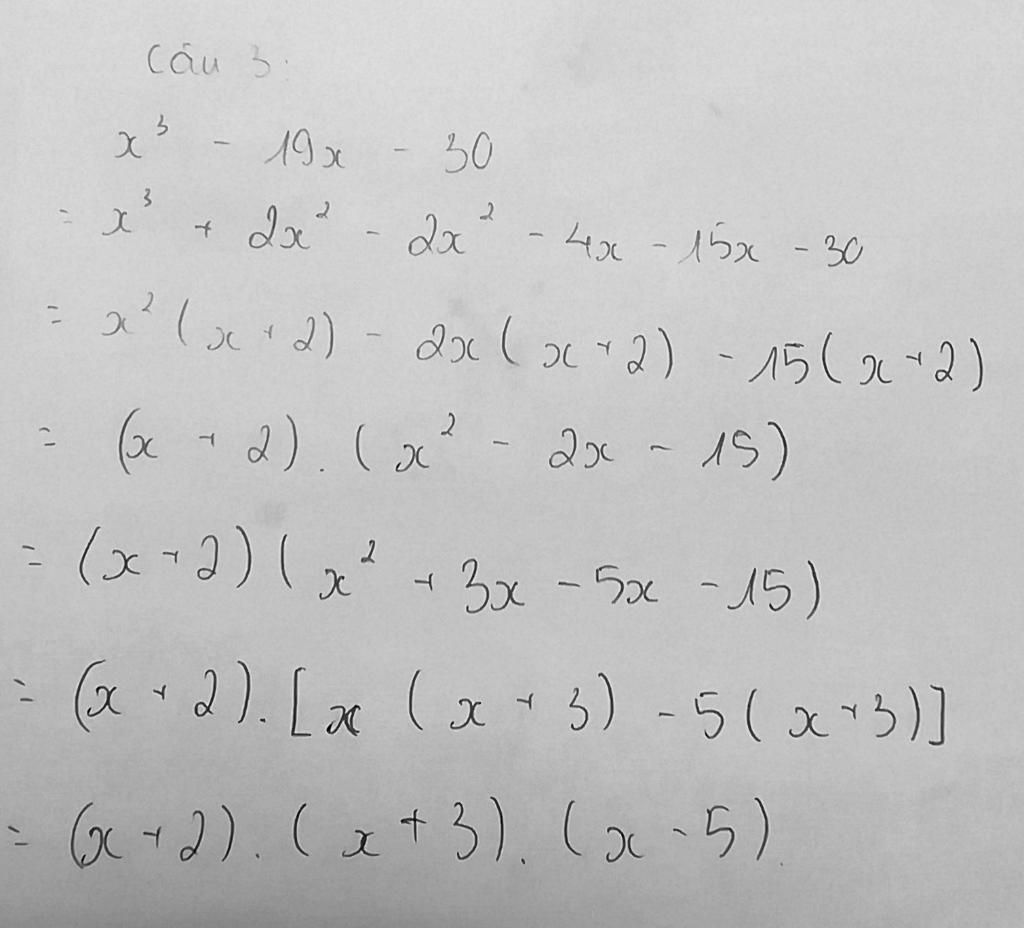 Câu 3:
x³ - 19x - 30
= x³ + 2x² - 2x² - 4x - 15x - 30
= x² (x + 2) - 2x (x + 2) - 15 (x + 2)
= (x + 2) . (x² - 2x - 15)
= (x + 2) (x² + 3x - 5x - 15)
= (x + 2) . [x (x + 3) - 5 (x + 3)]
= (x + 2) . (x + 3) . (x - 5).